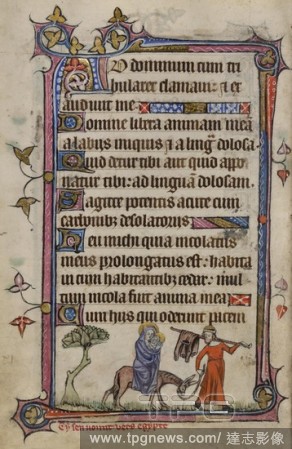 AD dominum cum tri
bularer clamaui: et ex
audiuit me.
Domine libera animam mea
a labijs iniquis et a lingua dolosa.
Quid detur tibi aut quid appo
natur tibi: ad linguam dolosam.
Sagitte potentis acute cum
carbonibz desolatorijs
Heu michi quia incolatus
meus prolongatus est: habita
ui cum habitantibz cedar: mul
tum incola fuit anima mea
Cum hijs qui oderunt pacem
TPG
vers egypte
www.tpgnews.com / 達志影像